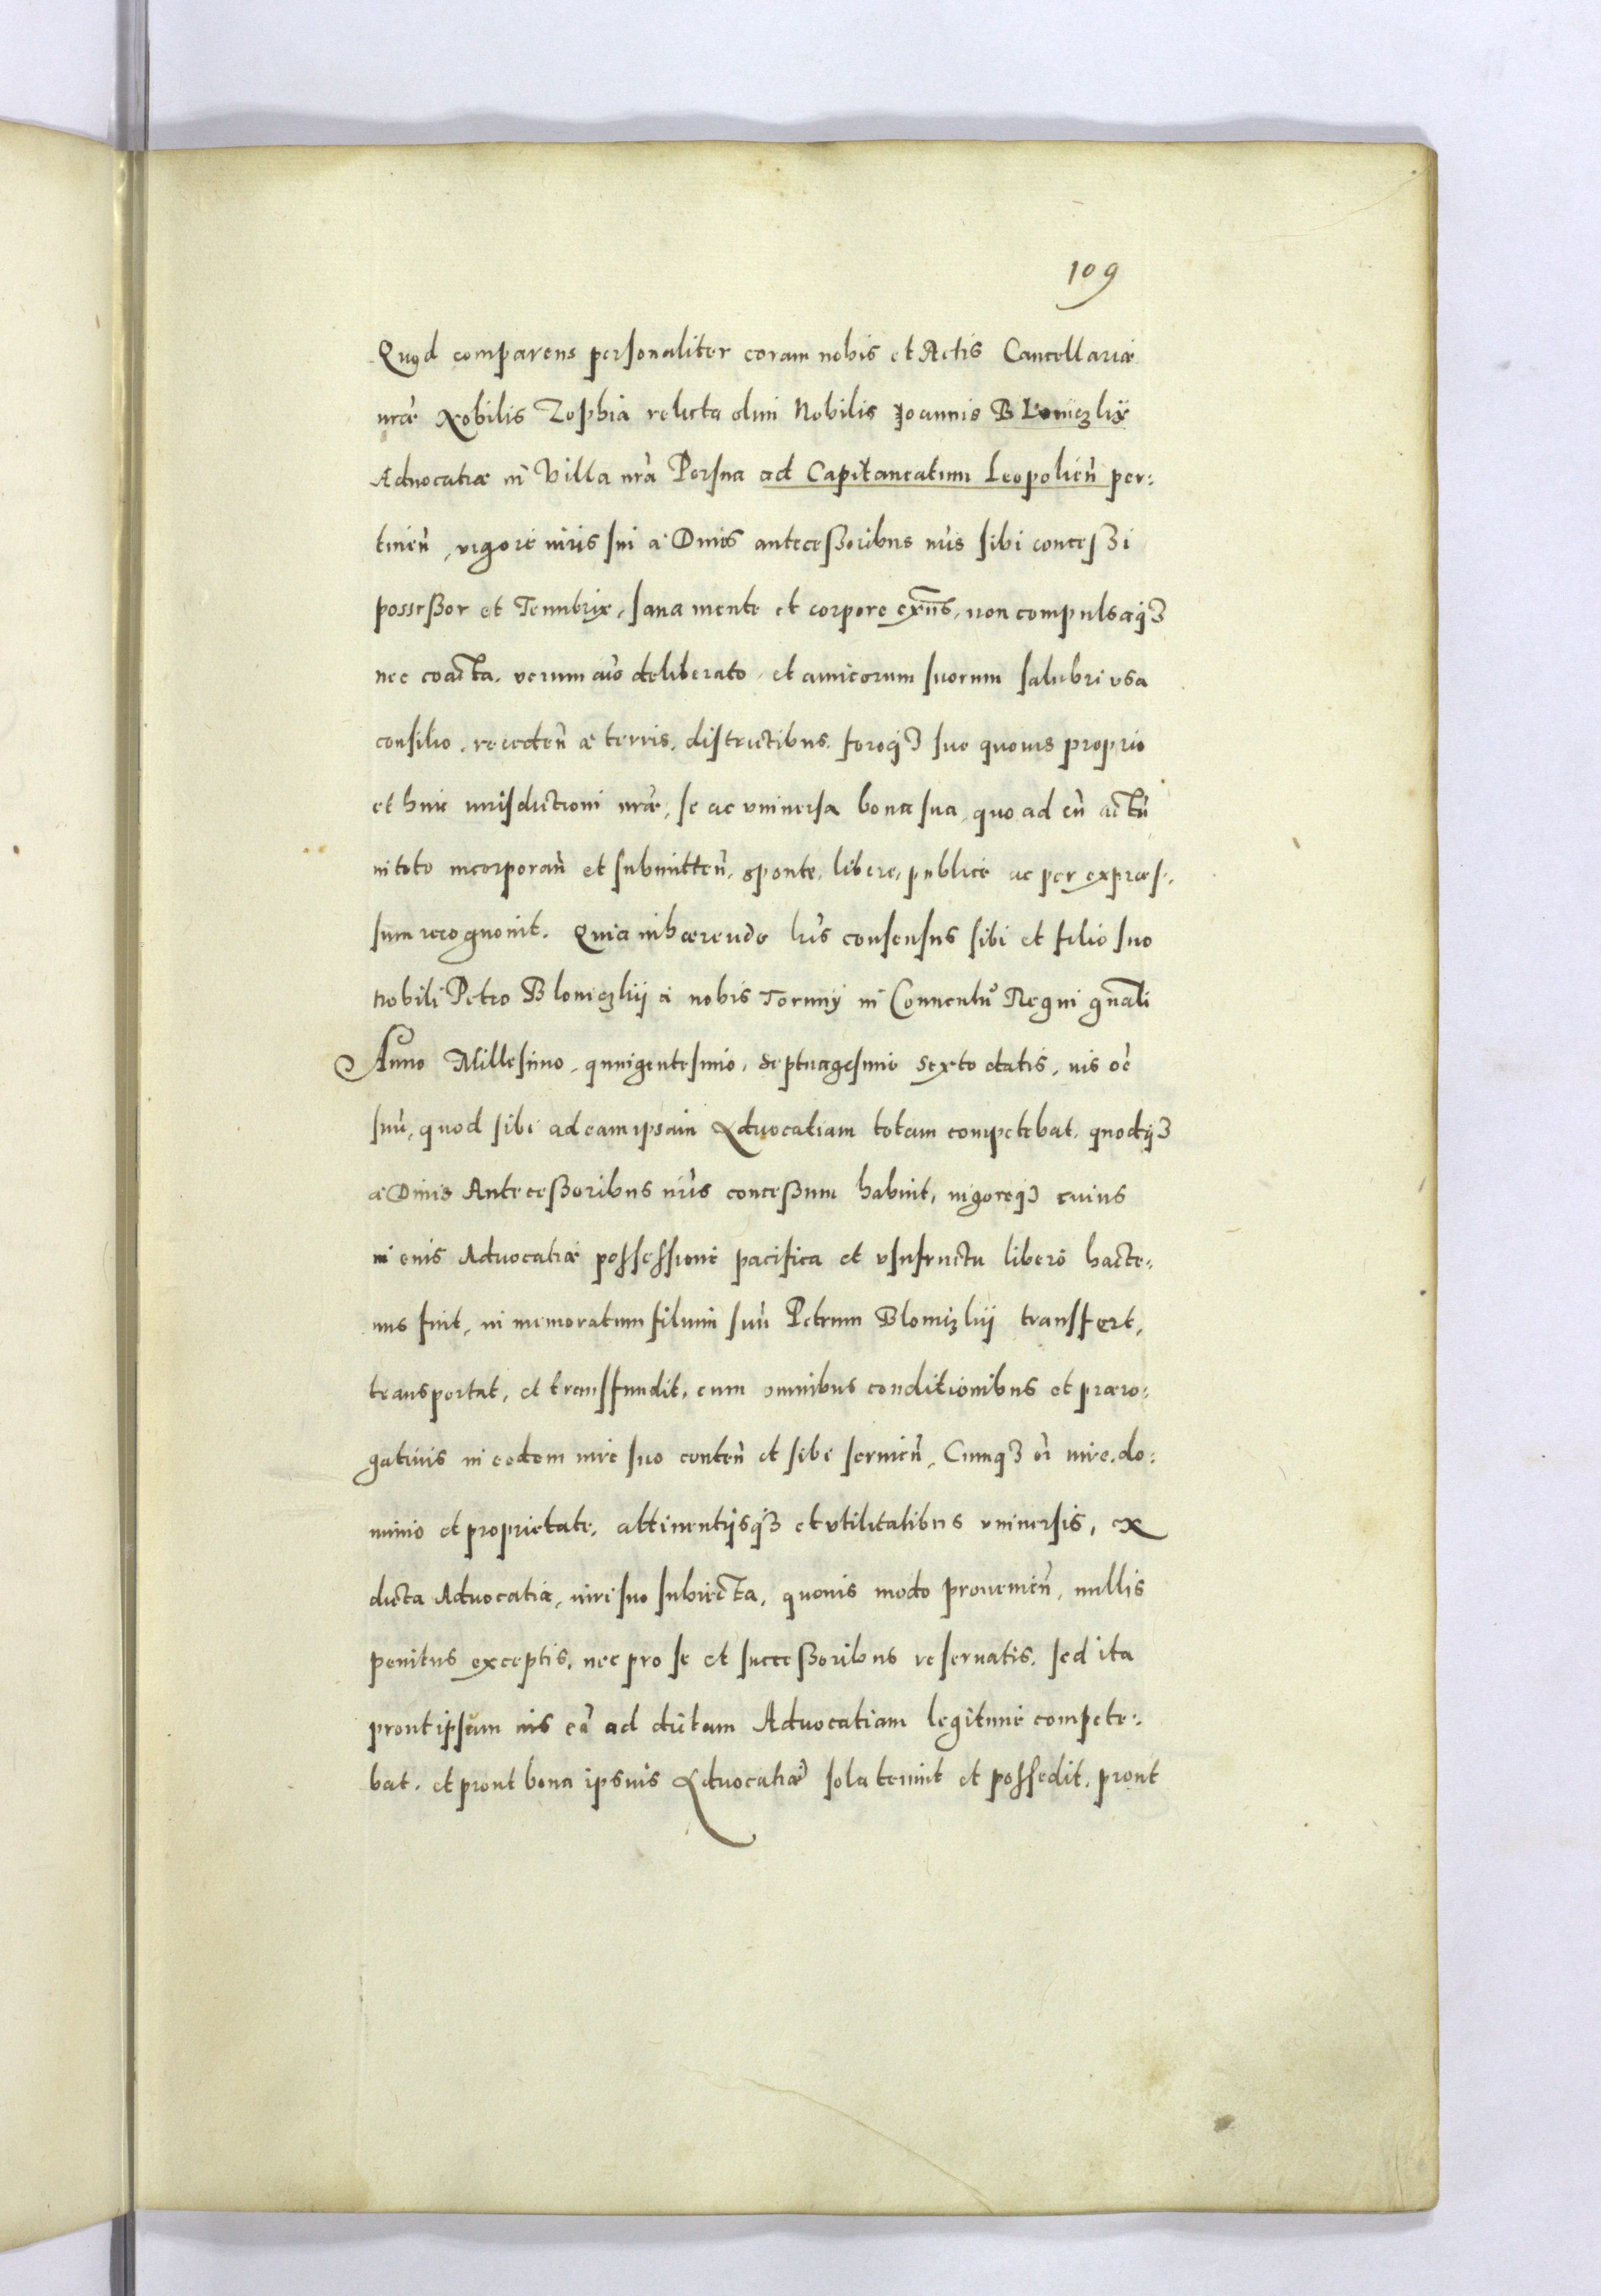 109
Quod comparens personaliter coram nobis et Actis Cancellariæ
nrãe Nobilis Zophia relicta olim Nobilis Joannis Blonięzkÿ
Aduocatiæ in Villa nrã Persna ad Capitaneatum Leopolieñ per:
tineñ, vigore iuris sui à Diuis antecessoribus nris sibi concessi
possessor et Tenutrix, sana mente et corpore exiñs, non compulsaq3
nec coacta, verum aĩo deliberato, et amicorum suorum salubri vsa
consilio, recedeñ à terris, districtibus, foroq3 suo quouis proprio
et huic iurisdictioni nræ, se ac vniuersa bona sua, quo ad eũ actũ
in toto incorporañ et submitteñ, sponte, libere, publicè ac per expræs:
sum recognouit. Quia inhærendo lris consensus sibi et filio suo
nobili Petro Blonięzkij à nobis Toruny in Conuentu Regni gñali
Anno Millesimo, quingentesimo, septuagesimo sexto datis, ius oẽ
suũ, quod sibi ad eam ipsam Aduocatiam totam competebat, quodq3
à Diuis Antecessoribus nris concessum habuit, uigoreq3 cuius
in eius Aduocatiæ possessione pacifica et vsufructu libero hacte:
nus fuit, in memoratum filium suũ Petrum Blonięzkij transfert,
transportat, et transfundit, cum omnibus conditionibus et præro:
gatiuis in eodem iure suo conteñ et sibi seruieñ, Cumq3 oĩ iure, do:
minio et proprietate, attinentijsq3 et vtilitatibus vniuersis, ex
dicta Aduocatia, iuri suo subiecta, quouis modo prouenieñ, nullis
penitus exceptis, nec pro se et successoribus reseruatis, sed ita
prout ipsum ius eã ad dictam Aduocatiam legitime compete:
bat, et prout bona ipsius Aduocatiæ sola tenuit et possedit, prout